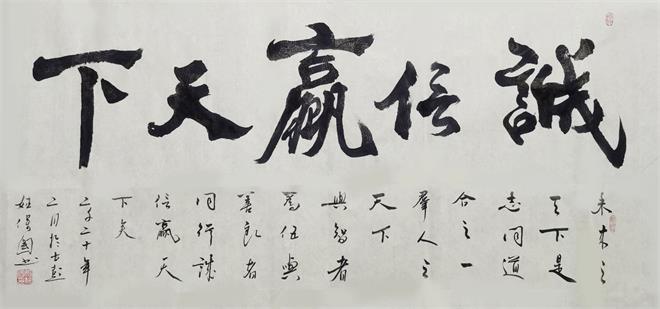 誠信贏天下
未来之
天下是
志同道
合之一
羣人之
天下
與智者
為伍與
善良者
同行誠
信贏天
下矣
二千二十年
二月於古彭
國